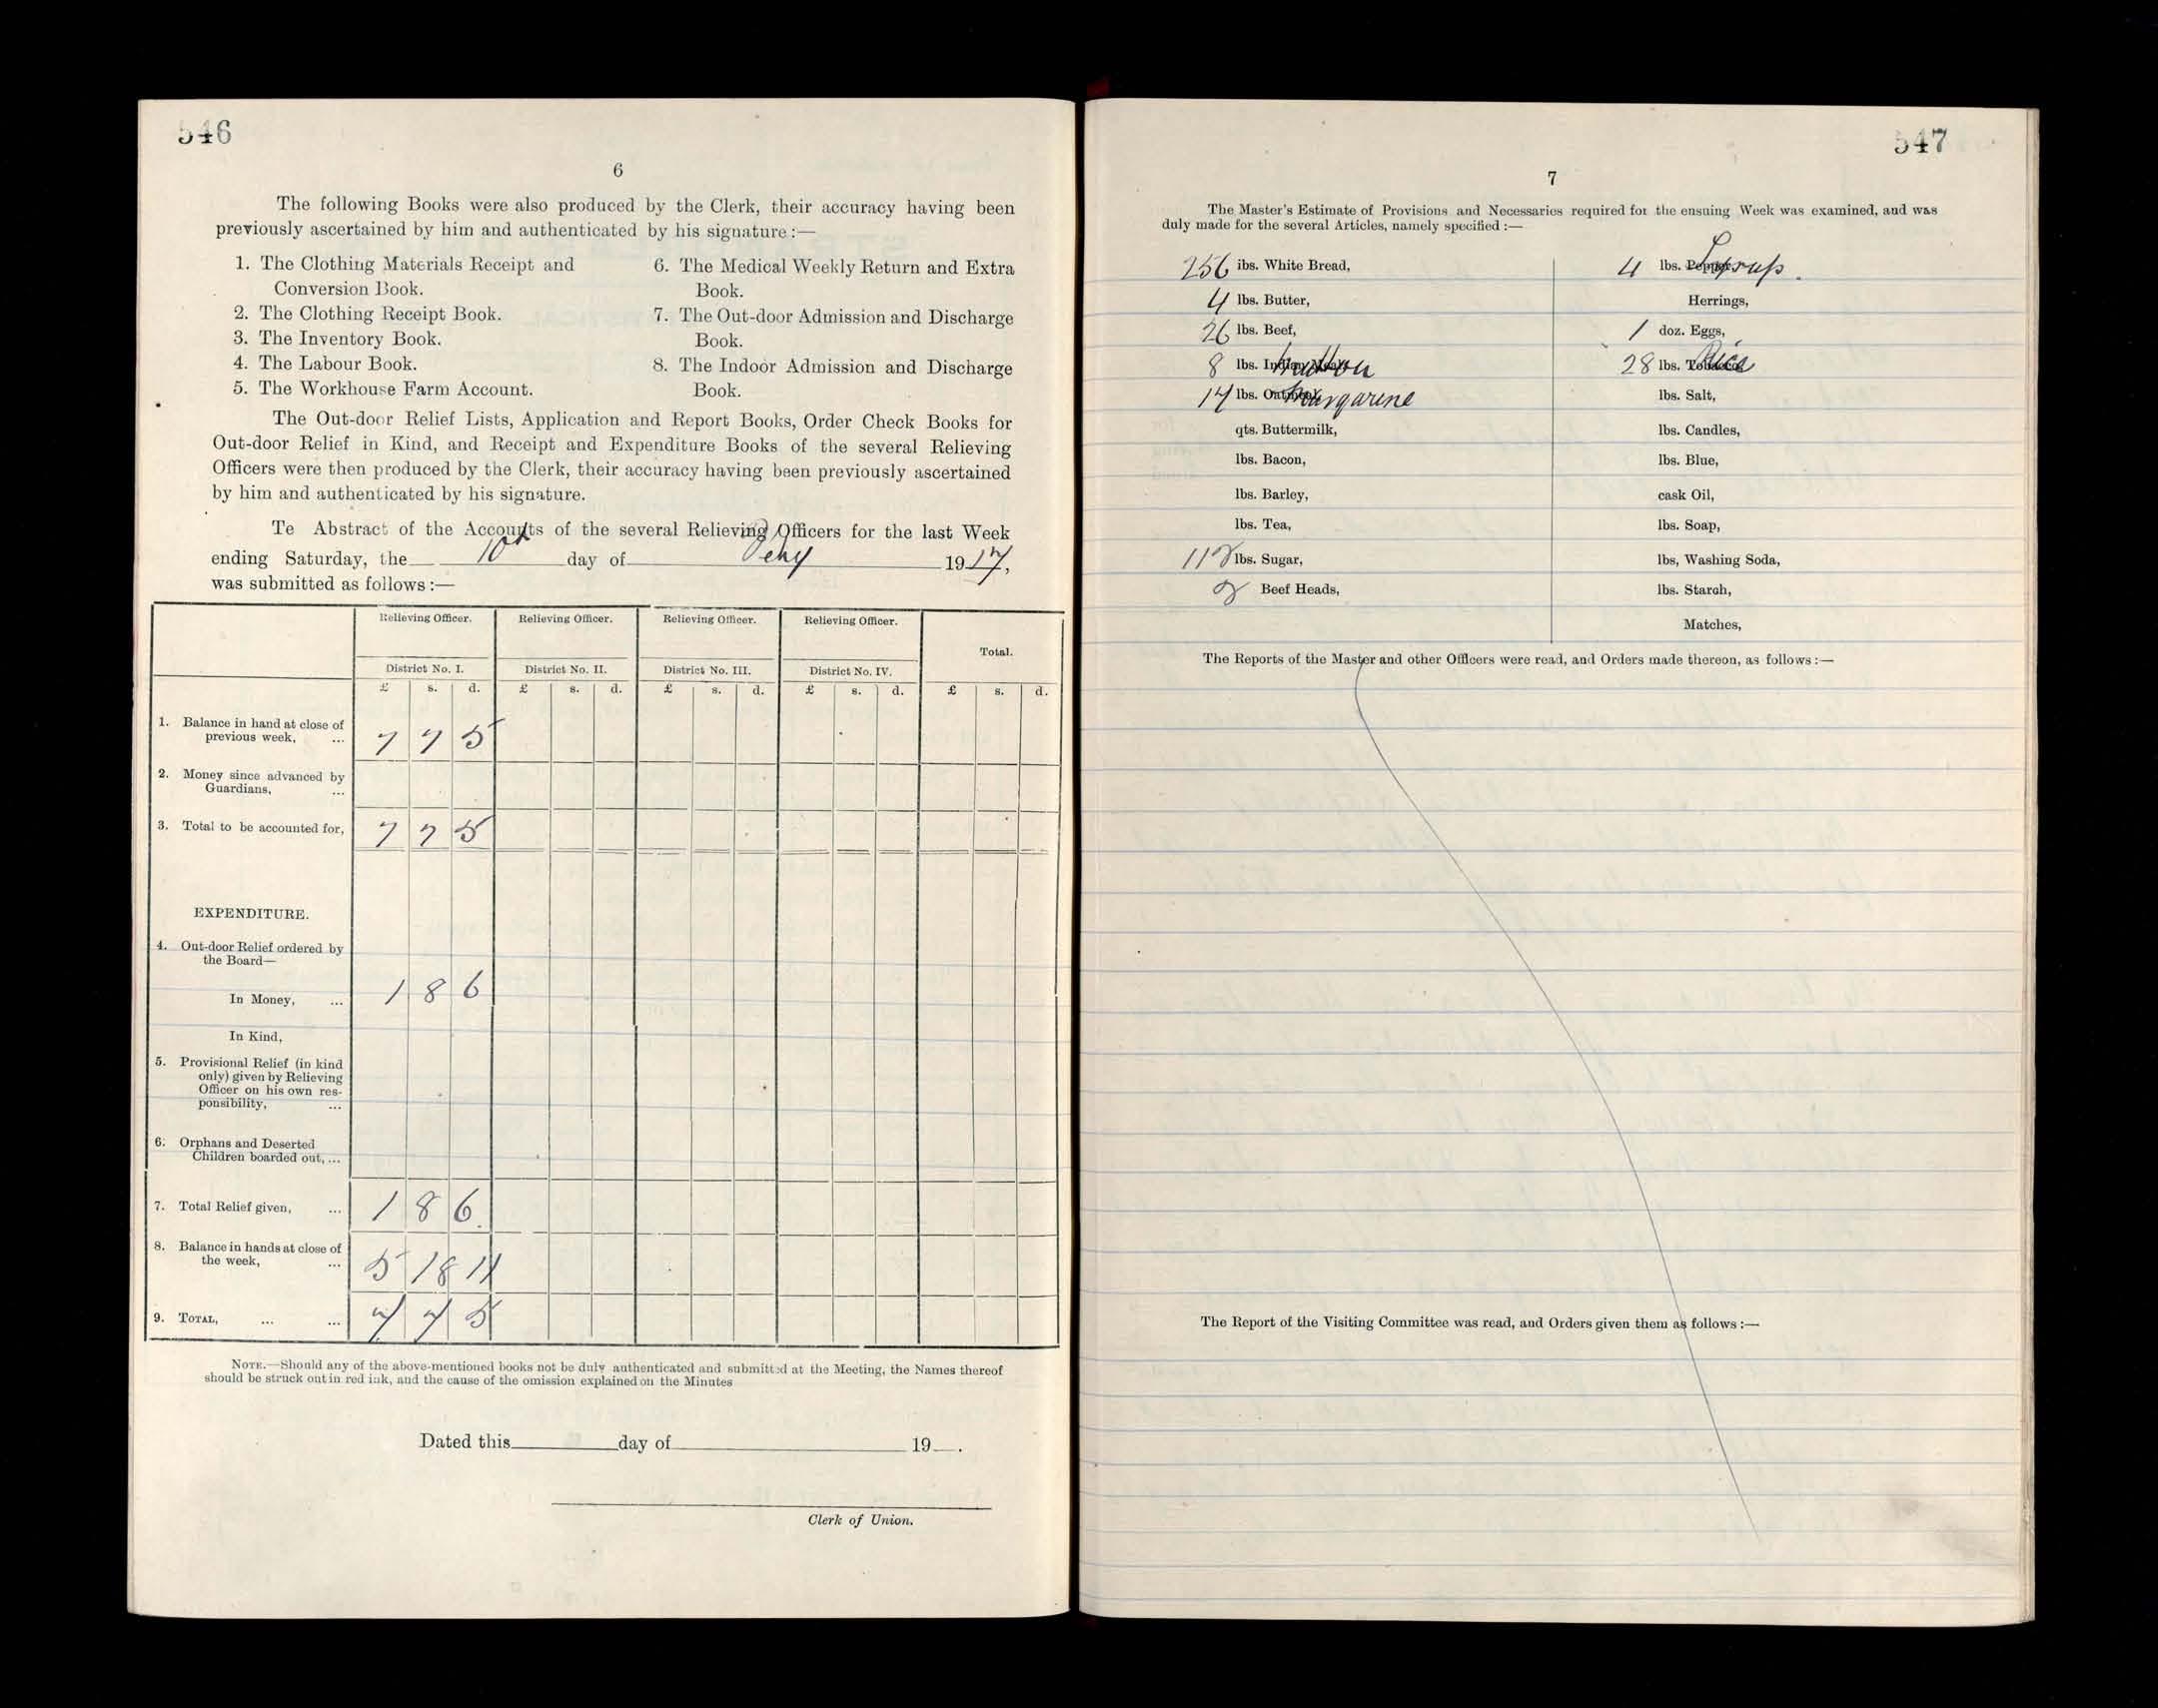 546
6
The following Books were also produced by the Clerk, their accuracy having been
previously ascertained by him and authenticated by his signature :—
1. The Clothing Materials Receipt and
Conversion Book.
2. The Clothing Receipt Book.
3. The Inventory Book.
4. The Labour Book.
5. The Workhouse Farm Account.
6. The Medical Weekly Return and Extra
Book.
7. The Out-door Admission and Discharge
Book.
8. The Indoor Admission and Discharge
Book.
The Out-door Relief Lists, Application and Report Books, Order Check Books for
Out-door Relief in Kind, and Receipt and Expenditure Books of the several Relieving
Officers were then produced by the Clerk, their accuracy having been previously ascertained
by him and authenticated by his signature.
Te Abstract of the Accounts of the several Relieving Officers for the last Week
ending Saturday, the 10th day of 1917,
was submitted as follows :—
Relieving Officer. Relieving Officer. Relieving Officer. Relieving Officer. Total.
District No. I. District No. II. District No. III. District No. IV.
£ s. d. £ s. d. £ s. d. £ s. d. £ s. d.
1. Balance in hand at close of
previous week, ... 7 7 5
2. Money since advanced by
Guardians, ...
3. Total to be accounted for, 7 7 5
EXPENDITURE.
4. Out-door Relief ordered by
the Board—
In Money, ... 1 8 6
In Kind,
5. Provisional Relief (in kind
only) given by Relieving
Officer on his own res-
ponsibility, ...
6. Orphans and Deserted
Children boarded out, ...
7. Total Relief given, ... 1 8 6
8. Balance in hands at close of
the week, ... 5 18 11
9. TOTAL, ... ... 7 7 5
NOTE.—Should any of the above-mentioned books not be duly authenticated and submitted at the Meeting, the Names thereof
should be struck out in red ink, and the cause of the omission explained on the Minutes
Dated this day of 19 .
Clerk of Union.
547
7
The Master's Estimate of Provisions and Necessaries required for the ensuing Week was examined, and was
duly made for the several Articles, namely specified :—
256 lbs. White Bread,
4 lbs. Butter,
26 lbs. Beef,
8 lbs. Indian Meal Mutton
14 lbs. Oatmeal Margarine
qts. Buttermilk,
lbs. Bacon,
lbs. Barley,
lbs. Tea,
112 lbs. Sugar,
2 Beef Heads,
4 lbs. Pepper Syrup.
Herrings,
1 doz. Eggs,
28 lbs. Tobacco Rice
lbs. Salt,
lbs. Candles,
lbs. Blue,
cask Oil,
lbs. Soap,
lbs, Washing Soda,
lbs. Starch,
Matches,
The Reports of the Master and other Officers were read, and Orders made thereon, as follows :—
The Report of the Visiting Committee was read, and Orders given them as follows :—